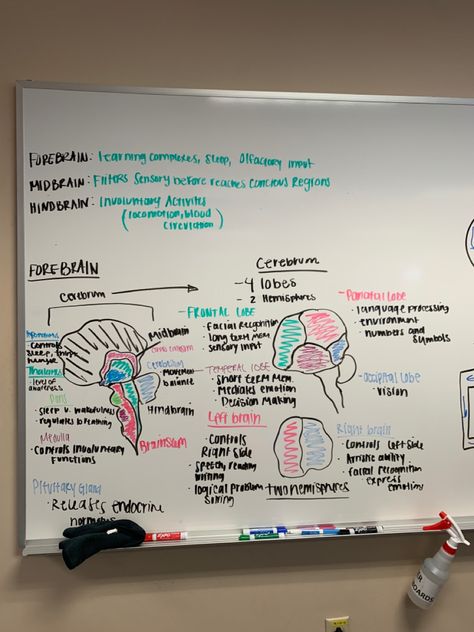 FOREBRAIN: Learning complexes, sleep, Olfactory input
MIDBRAIN: Filters Sensory before reaches Concious Regions
HINDBRAIN: Involuntary Activites
(locomotion, blood circulation)
FOREBRAIN
cerebrum
Cerebrum
- 4 lobes
- 2 Hemispheres
- FRONTAL LOBE
• Facial Recognition
• long term mem
• sensory input
- Parietal LOBE
• language processing
• environment
• numbers and symbols
Midbrain
• Controls
sleep, thirst
hunger
Thalamus
• level of
awareness
Movement
balance
Hindbrain
Brainstem
Pons
• sleep v. wakefulness
• regulates breathing
Medulla
• Controls involuntary
Functions
- TEMPORAL LOBE
• Short term Mem.
• Mediates emotion
• Decision Making
- occipital lobe
• Vision
Left brain
• Controls
Right Side
• speech, reading
writing
• logical problem
solving
Right brain
• Controls Left Side
• Artistic ability
• facial recognition
express
emotions
two hemispheres
Pituitary Gland
• Releases endocrine
EXPO